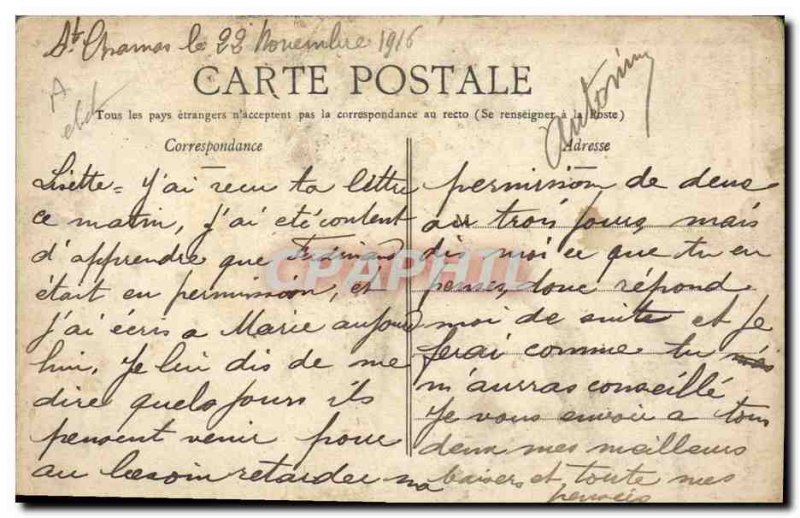 St Chamas le 22 Novembre 1916
CARTE POSTALE
Tous les pays étrangers n'acceptent pas la correspondance au recto (Se renseigner à la Poste)
Correspondance
Lisette = J'ai recu ta lettre
ce matin, j'ai eté content
d'apprendre que
était en permission, et
j'ai écris a Marie aujourd
hui. Je lui dis de me
dire quels jours ils
pensent venir pour
au besoin retarder ma
Adresse
Antonin
permission de deux
au trois jours mais
dis moi ce que tu en
penses, donc répond
moi de suite et je
ferai comme tu
m'aurras conseillé
Je vous envoie a tous
deux mes meilleurs
baisers et toute mes
pensées
CPAPHIL